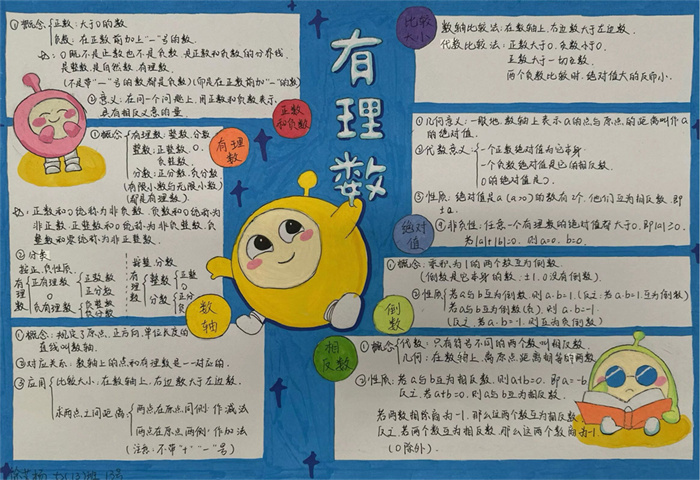 有理数
正数和负数
①概念
正数：大于0的数
负数：在正数前加上"一"号的数
0既不是正数也不是负数，是正数和负数的分界线，
是整数，是自然数，有理数
(不是带"一"号的数都是负数)(即是在正数前加"一"的数)
②意义：在同一个问题上，用正数和负数表示
具有相反义意的量
有理数
①概念
有理数：整数、分数
整数：正整数、0、
负整数
分数：正分数、负分数
(有限小数与无限小数)
(都是有理数)
正数和0统称为非负数，负数和0统称为
非正数，正整数和0统称为非负整数，负
整数和零统称为非正整数。
②分类
按正、负性质
有理数
正有理数
正整数
正分数
0
负有理数
负整数
负分数
按整、分数
有理数
整数
正整
0
分数
正分
负分
数轴
①概念：规定了原点，正方向，单位长度的
直线叫数轴。
②对应关系：数轴上的点和有理数是一一对应的。
③应用
比较大小：在数轴上，右边数大于左边数。
求两点之间距离
两点在原点同侧：作减法
两点在原点两侧：作加法
(注意：不带"+""一"号)
比较大小
数轴比较法：在数轴上，右边数大于左边数。
代数比较法：正数大于0，负数小于0
正数大于一切负数
两个负数比较时，绝对值大的反而小。
绝对值
①几何意义：一般地，数轴上表示a的点与原点的距离叫作a
的绝对值。
②代数意义
一个正数绝对值为它本身
一个负数绝对值是它的相反数
0的绝对值是0
③性质：绝对值是a(a>0)的数有2个，他们互为相反数，即
±a.
④非负性：任意一个有理数的绝对值都大于0，即|a|≥0.
若|a|+|b|=0，则a=0，b=0.
倒数
①概念：乘积为1的两个数互为倒数。
(倒数是它本身的数：±1，0没有倒数)
②性质
若a与b互为倒数，则a·b=1.(反之：若a·b=1，互为倒数)
若a与b互为负倒数，则a·b=-1.
(反之：若a·b=-1，则互为负倒数)
相反数
①概念
代数：只有符号不同的两个数叫相反数
几何：在数轴上，离原点距离相等的两数
②性质：若a与b互为相反数，则a+b=0，即a=-b
反之：若a+b=0，则a与b互为相反数，
若两数相除商为-1，那么这两个数互为相反数
反之：若两个数互为相反数，那么这两个数商为-1
(0除外)